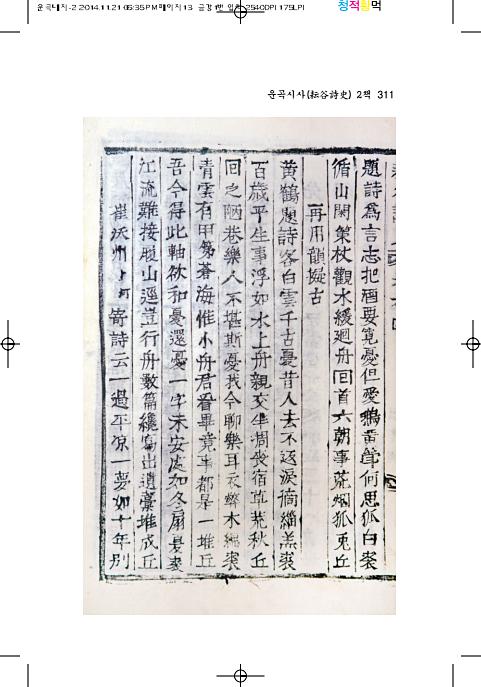 운곡대지-2 2014.11.21 05:35 PM 페이지13
2540DPI 175LPI
청적황먹
운곡시사(耘谷詩史) 2책 311
題詩爲言志把酒要寬憂但愛鵝黃 何思狐白裘
循山閑策杖觀水緩廻舟回首六朝事荒烟狐兎丘
再用韻擬古
黃鶴題詩客白雲千古憂昔人去不返淚滴緇羔裘
百歲平生事浮如水上舟親交半凋喪宿草荒秋丘
回之陋巷樂人不堪斯憂我今聊樂耳衣弊木綿裘
靑雲有甲第蒼海惟小舟君看畢竟事都是一堆丘
吾今得此軸欲和憂還憂一字未安處如冬扇夏裘
江流難接腹山逕豈行舟數篇纔寫出遺藁堆成丘
崔沃州 寄詩云一過平原一夢如十年別